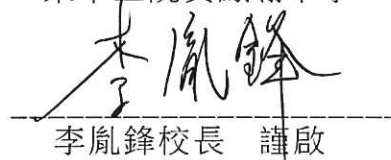 李胤鋒
李胤鋒校長 謹啟